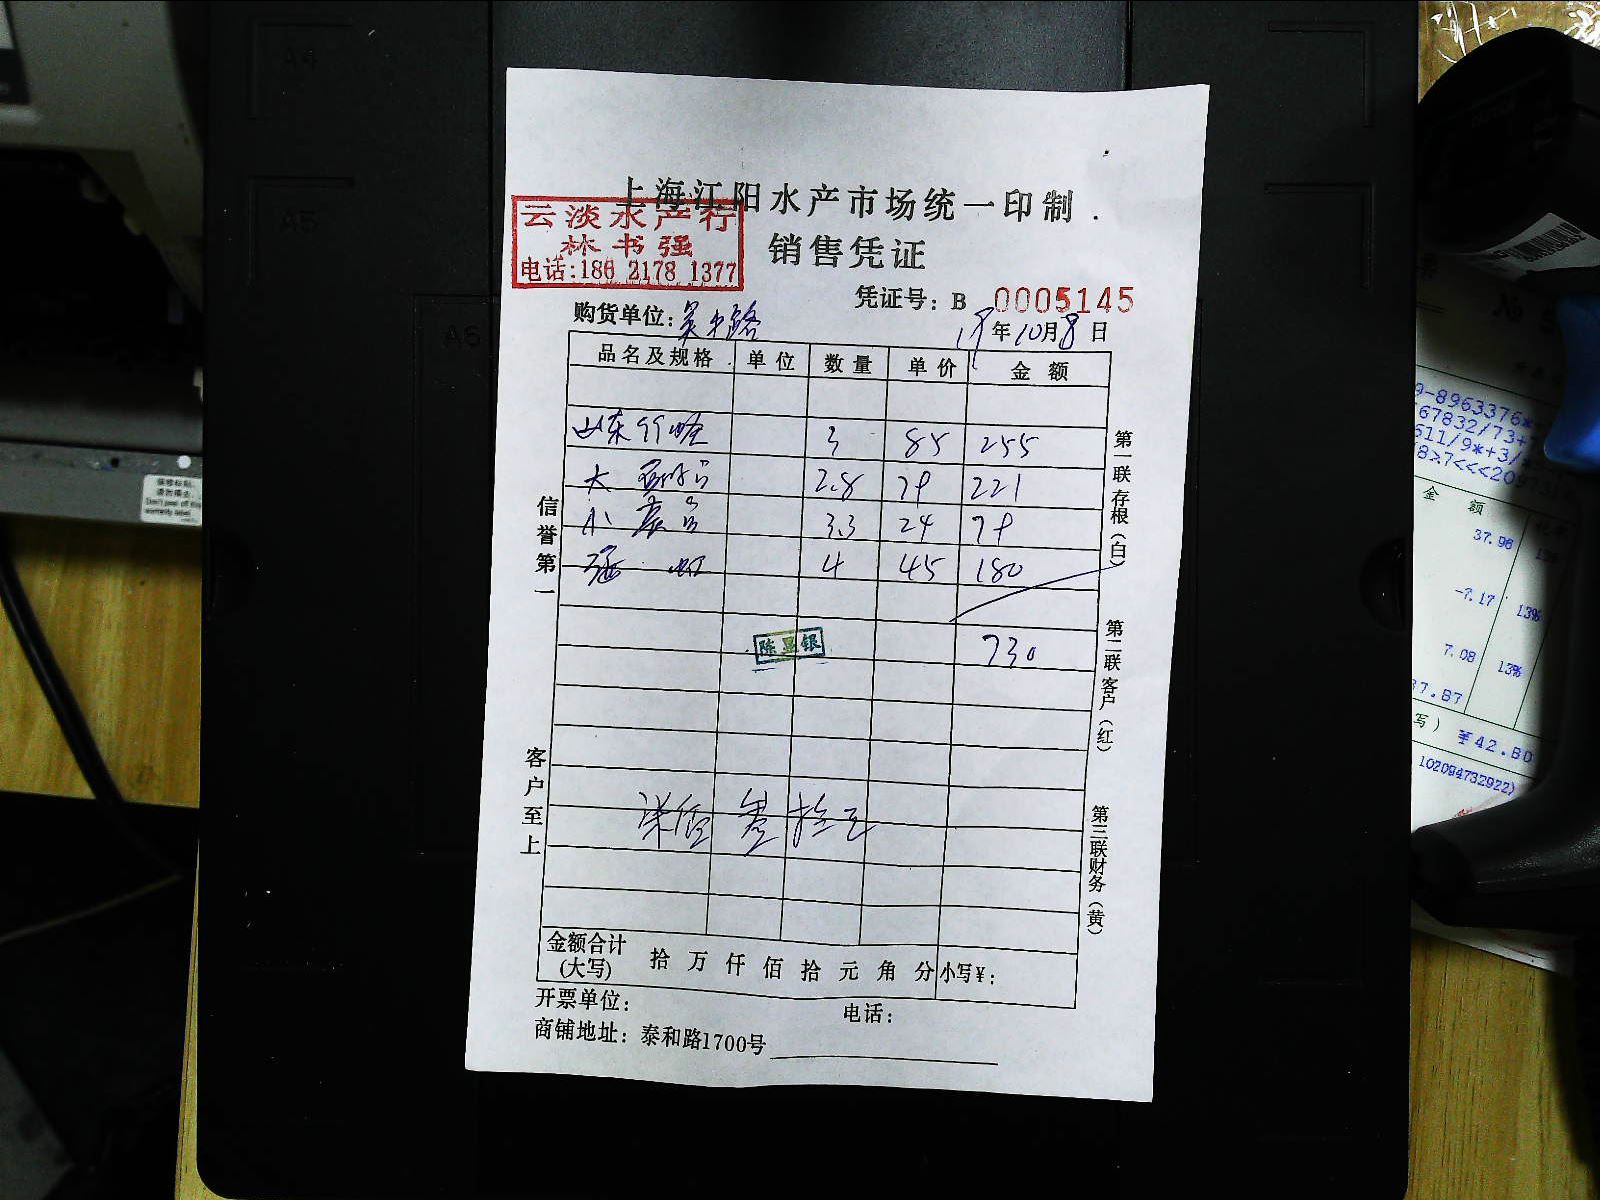 A4
A5
A6
上海江阳水产市场统一印制
云淡水产行
林书强
电话:186 2178 1377
销售凭证
凭证号: B 0005145
购货单位: 吴中路
19年10月8日
品名及规格 单位 数量 单价 金额
山东 3 85 255
大 2.8 79 221
小 3.3 24 79
4 45 180
730
陈显银
柒佰叁拾元
金额合计(大写) 拾万仟佰拾元角分 小写¥:
开票单位: 电话:
商铺地址: 泰和路1700号
信誉第一
客户至上
第一联存根(白)
第二联客户(红)
第三联财务(黄)
金额
37.96 13%
-7.17 13%
7.08 13%
37.87
写) ¥42.80
102094732922)